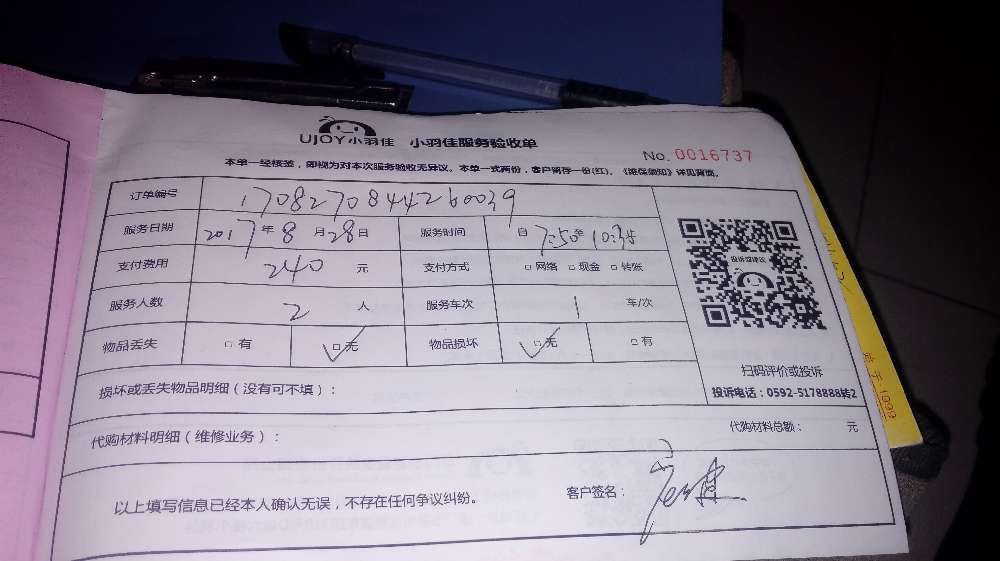 UJOY小羽佳 小羽佳服务验收单
No. 0016737
本单一经核签，即视为对本次服务验收无异议。本单一式两份，客户留存一份(红)。《维保须知》详见背面。
订单编号 1708270844260039
服务日期 2017年8月28日 服务时间 自7:50至10:35
支付费用 240元 支付方式 □网络 □现金 □转账
服务人数 2人 服务车次 1车/次
物品丢失 □有 □无 物品损坏 □无 □有
投诉或建议
扫码评价或投诉
投诉电话：0592-5178888转2
损坏或丢失物品明细（没有可不填）：
代购材料明细（维修业务）： 代购材料总额： 元
以上填写信息已经本人确认无误，不存在任何争议纠纷。 客户签名：